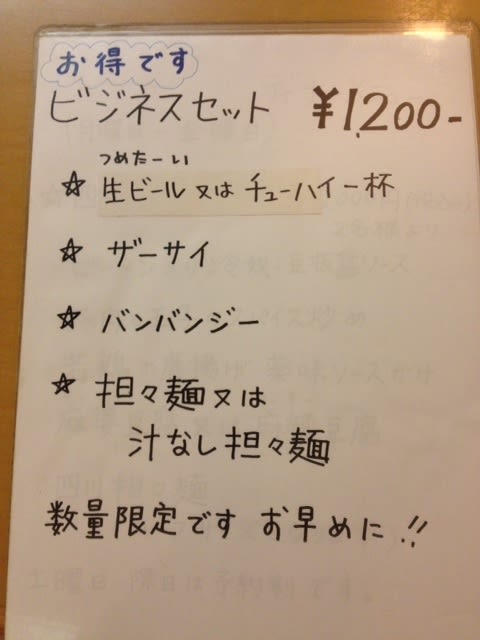 お得です
ビジネスセット ¥1,200-
つめたーい
☆ 生ビール又はチューハイ一杯
☆ ザーサイ
☆ バンバンジー
☆ 担々麺又は
汁なし担々麺
数量限定です お早めに!!
土曜日